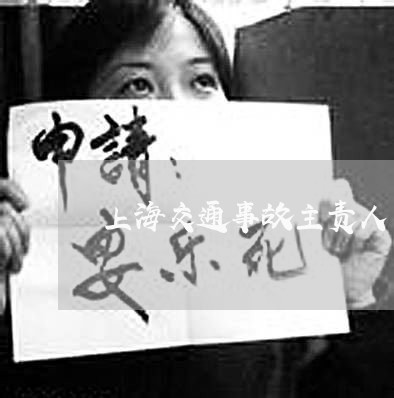 申請：
上海交通事故主责人
安乐死